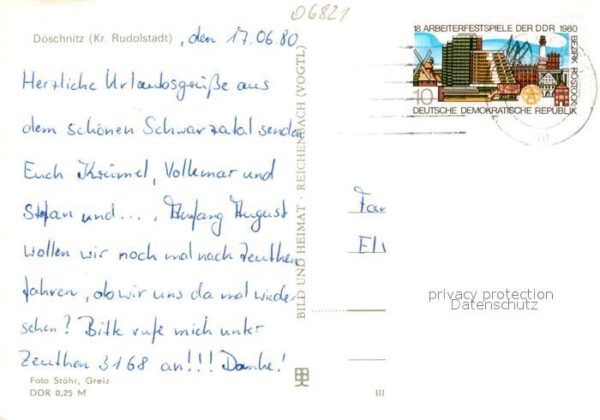 06821
Döschnitz (Kr. Rudolstadt) , den 17.06.80
Herzliche Urlaubsgrüße aus
dem schönen Schwarzatal senden
Euch Krümel, Volkmar und
Stefan und ... , Anfang August
wollen wir noch mal nach Zeuthen
fahren, ob wir uns da mal wieder
sehen? Bitte rufe mich unter
Zeuthen 3168 an!!! Danke!
Foto Stöhr, Greiz
DDR 0,25 M
BILD UND HEIMAT · REICHENBACH (VOGTL)
18. ARBEITERFESTSPIELE DER DDR 1980
BEZIRK ROSTOCK
10
DEUTSCHE DEMOKRATISCHE REPUBLIK
Fam
privacy protection
Datenschutz
III